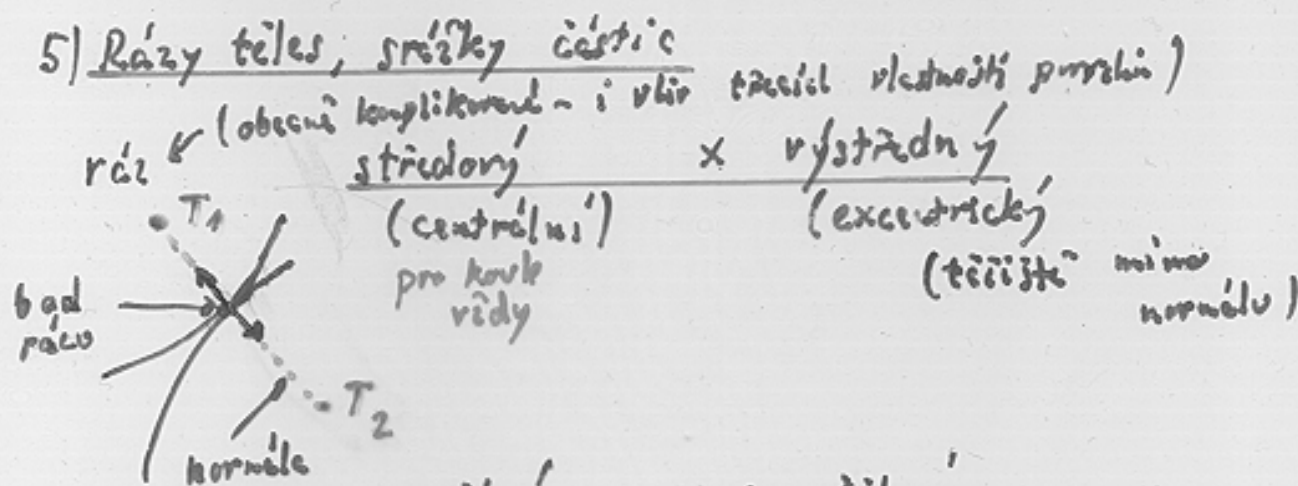 5) Rázy těles, srážky částic
(obecně komplikované - i vliv třecích vlastností povrchů)
ráz středový x výstředný
(centrální) (excentrický
pro koule vždy
(těžiště mimo normálu)
T1
bod rázu
T2
normála